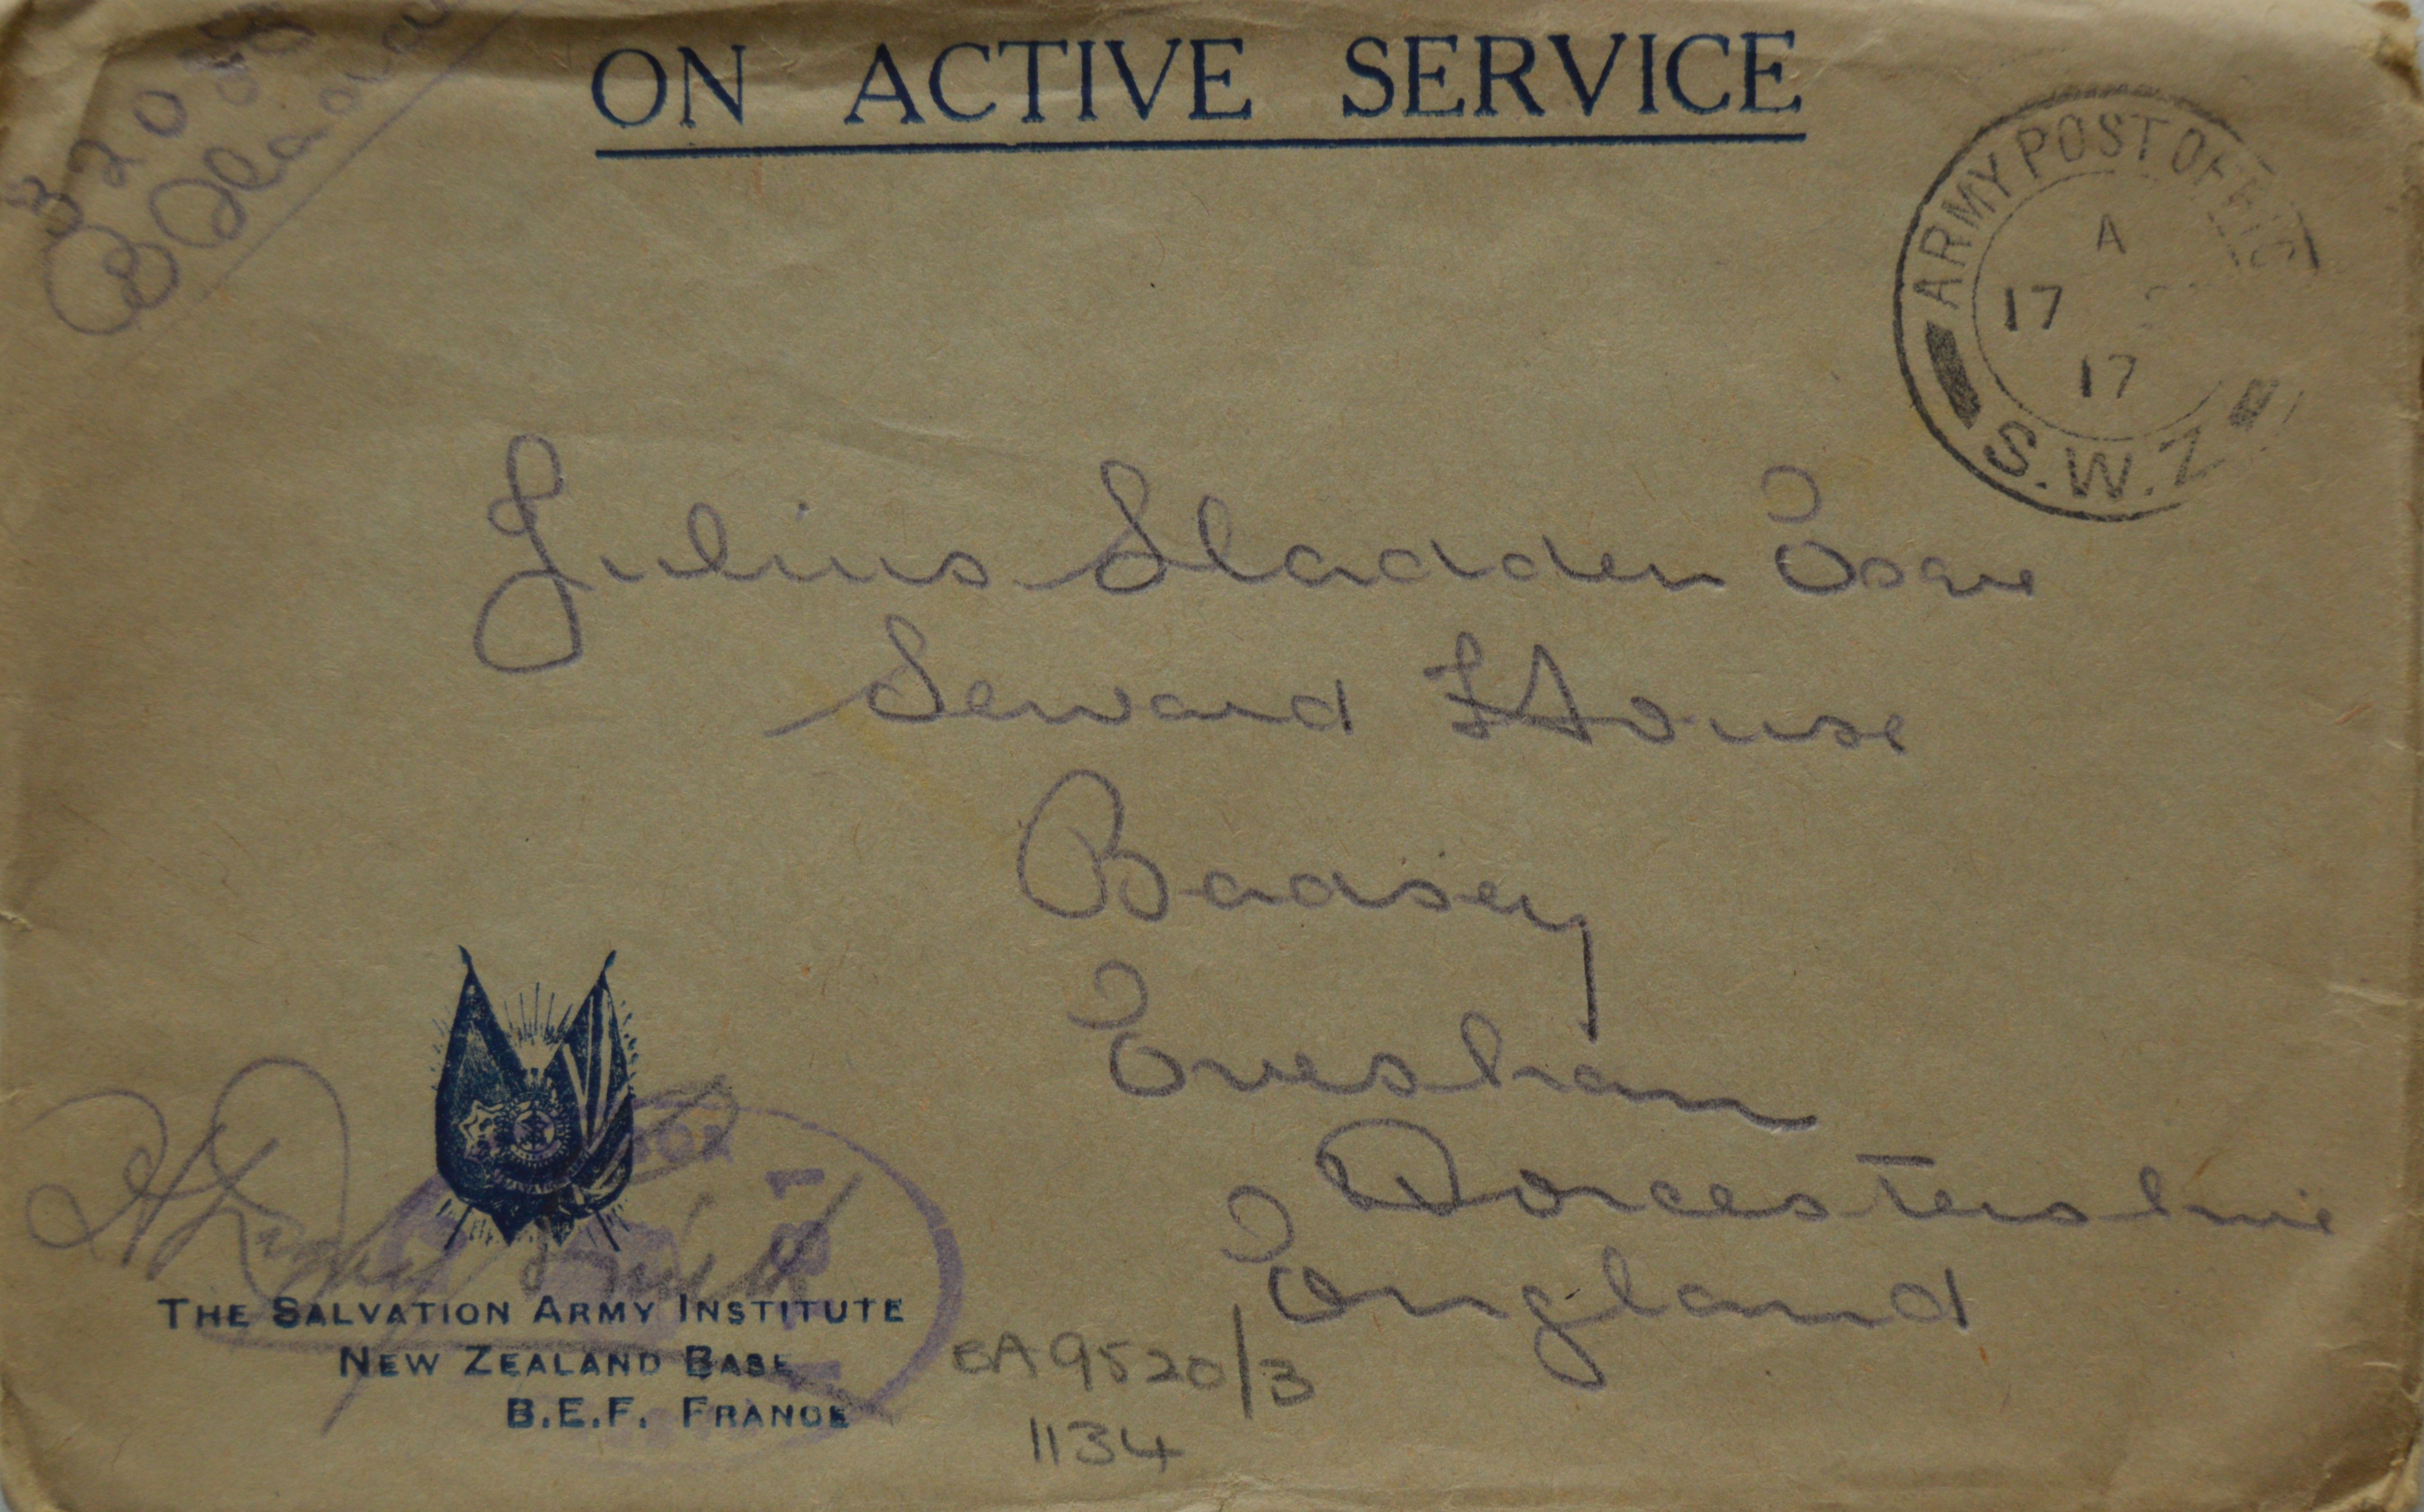 ON ACTIVE SERVICE
ARMY POST OFFICE
A
17
17
S.W.Z
Julius Sladden Esqre
Seward House
Badsey
Evesham
Worcestershire
England
THE SALVATION ARMY INSTITUTE
NEW ZEALAND BASE
B.E.F. FRANCE
EA 9520/3
1134